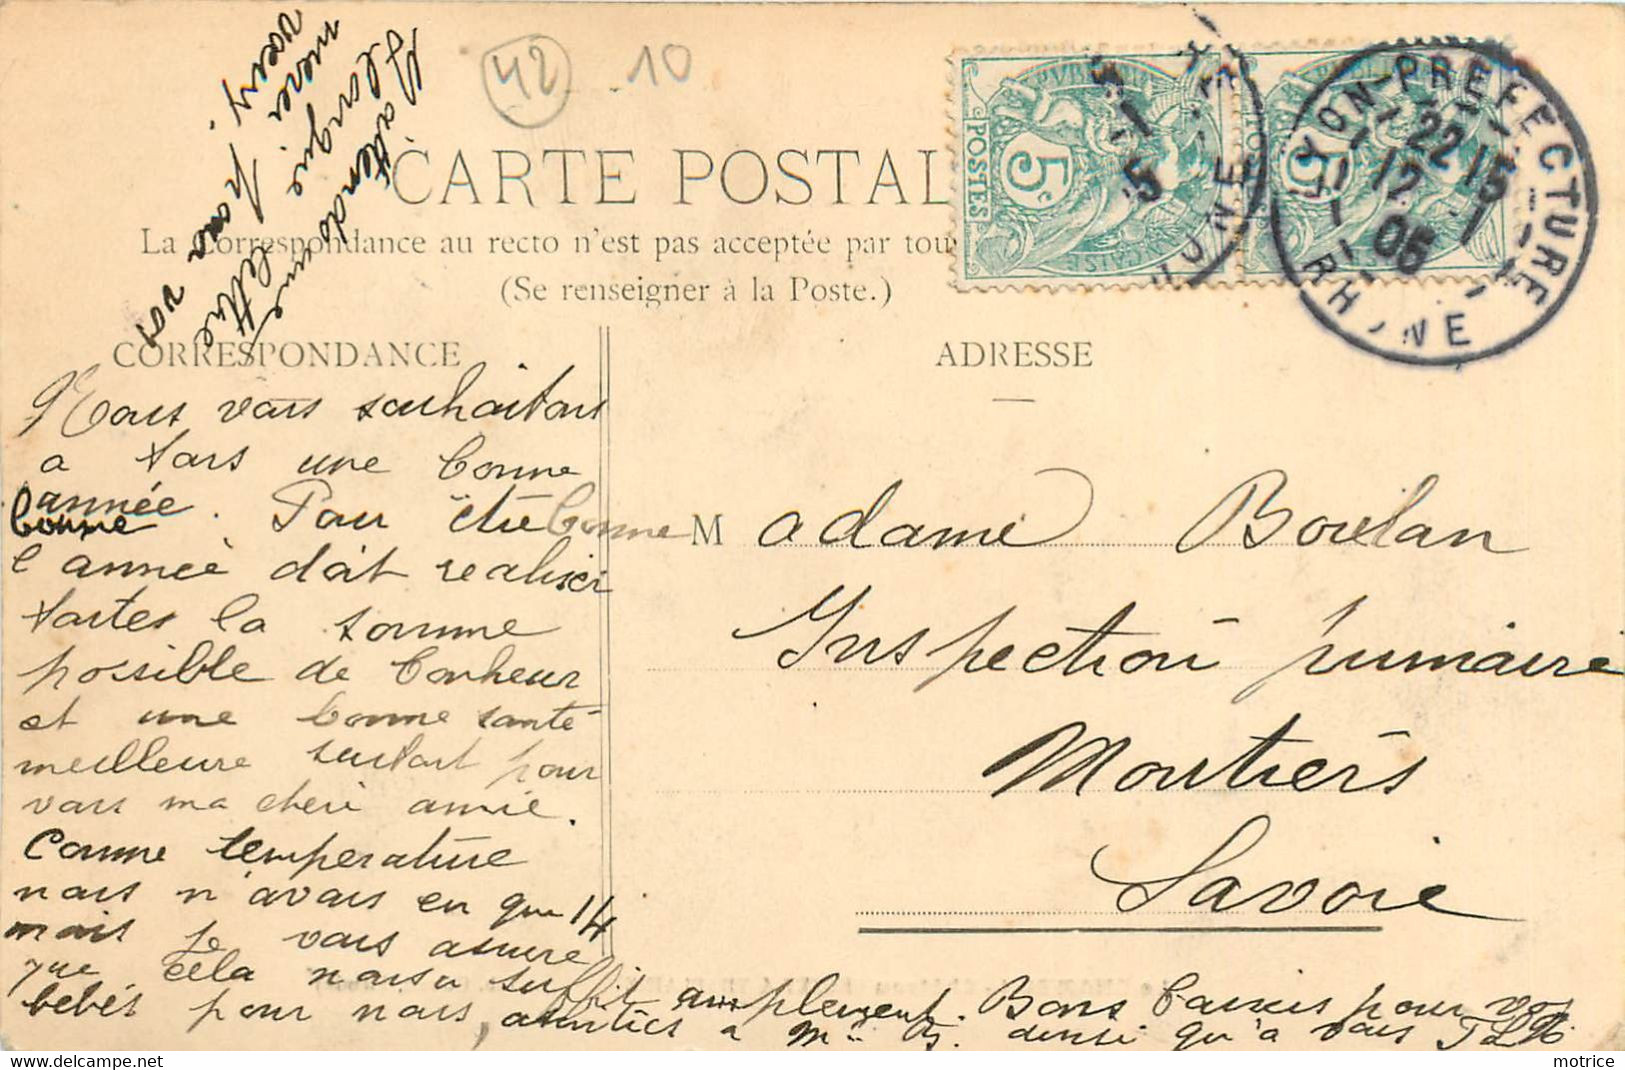 42 10
Gattendant une
longue lettre
merci pour vos
voeux.
CARTE POSTAL
La Correspondance au recto n'est pas acceptée par tou
(Se renseigner à la Poste.)
CORRESPONDANCE
ADRESSE
RÉPUBLIQUE FRANÇAISE
POSTES
5c
5c
LYON-PREFECTURE
22 15
12 - 1
06
RHONE
Nous vous souhaitons
a tous une bonne
année. Pour être bonne
bonne
l'année doit realiser
toutes la somme
possible de bonheur
et une bonne santé
meilleure surtout pour
vous ma cheri amie.
Comme temperature
nous n'avons eu que 14
mais je vous assure
que cela nous a suffit amplement. Bons baisers pour vos
bébés pour nous, amitiés a Mr B. ainsi qu'a vous
Madame Boulan
Inspection primaire
Moutiers
Savoie
motrice